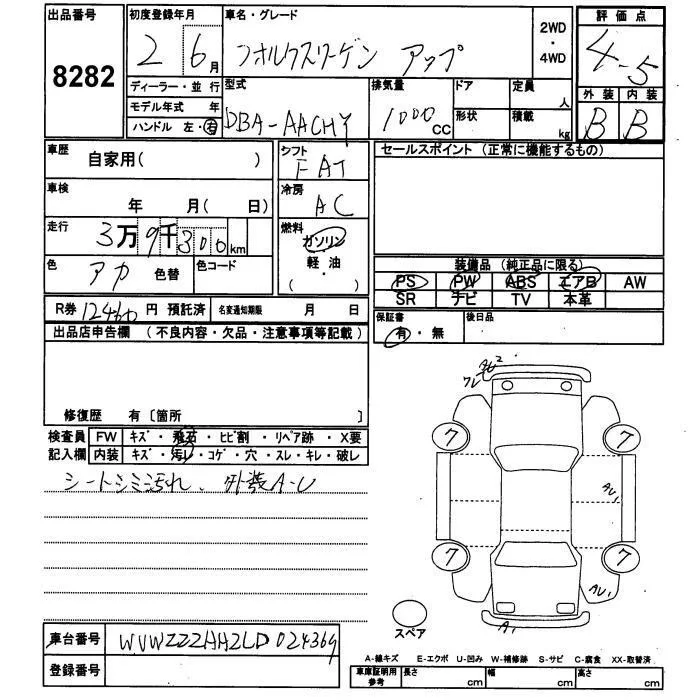 出品番号 初度登録年月 車名・グレード 2WD・4WD 評価点
8282 2 6月 フォルクスワーゲン アップ 4.5
ディーラー・並行 型式 排気量 ドア 定員 人 外装 内装
モデル年式 年 DBA-AACHY 1000 CC 形状 積載 kg B B
ハンドル 左・右
車歴 自家用( ) シフト FAT セールスポイント(正常に機能するもの)
車検 年 月( 日) 冷房 AC
走行 3万9千300km 燃料 ガソリン
軽・油
( ・ )
色 アカ 色替 色コード 装備品(純正品に限る)
PS PW ABS エアB AW
SR ナビ TV 本革
R券 12460円 預託済 名変通知期限 月 日 保証書 有・無 後日品
出品店申告欄 (不良内容・欠品・注意事項等記載)
修復歴 有〔箇所 〕
検査員 FW キズ・飛石・ヒビ割・リペア跡・X要
記入欄 内装 キズ・汚レ・コゲ・穴・スレ・キレ・破レ
シートシミ汚れ、外装A-U
7 7
AU1
7 7
AU1
A1
スペア
車台番号 WVWZZZAAZLD024369
登録番号
A-線キズ E-エクボ U-凹み W-補修跡 S-サビ C-腐食 XX-取替済
車庫証明用参考 長さ cm 幅 cm 高さ cm